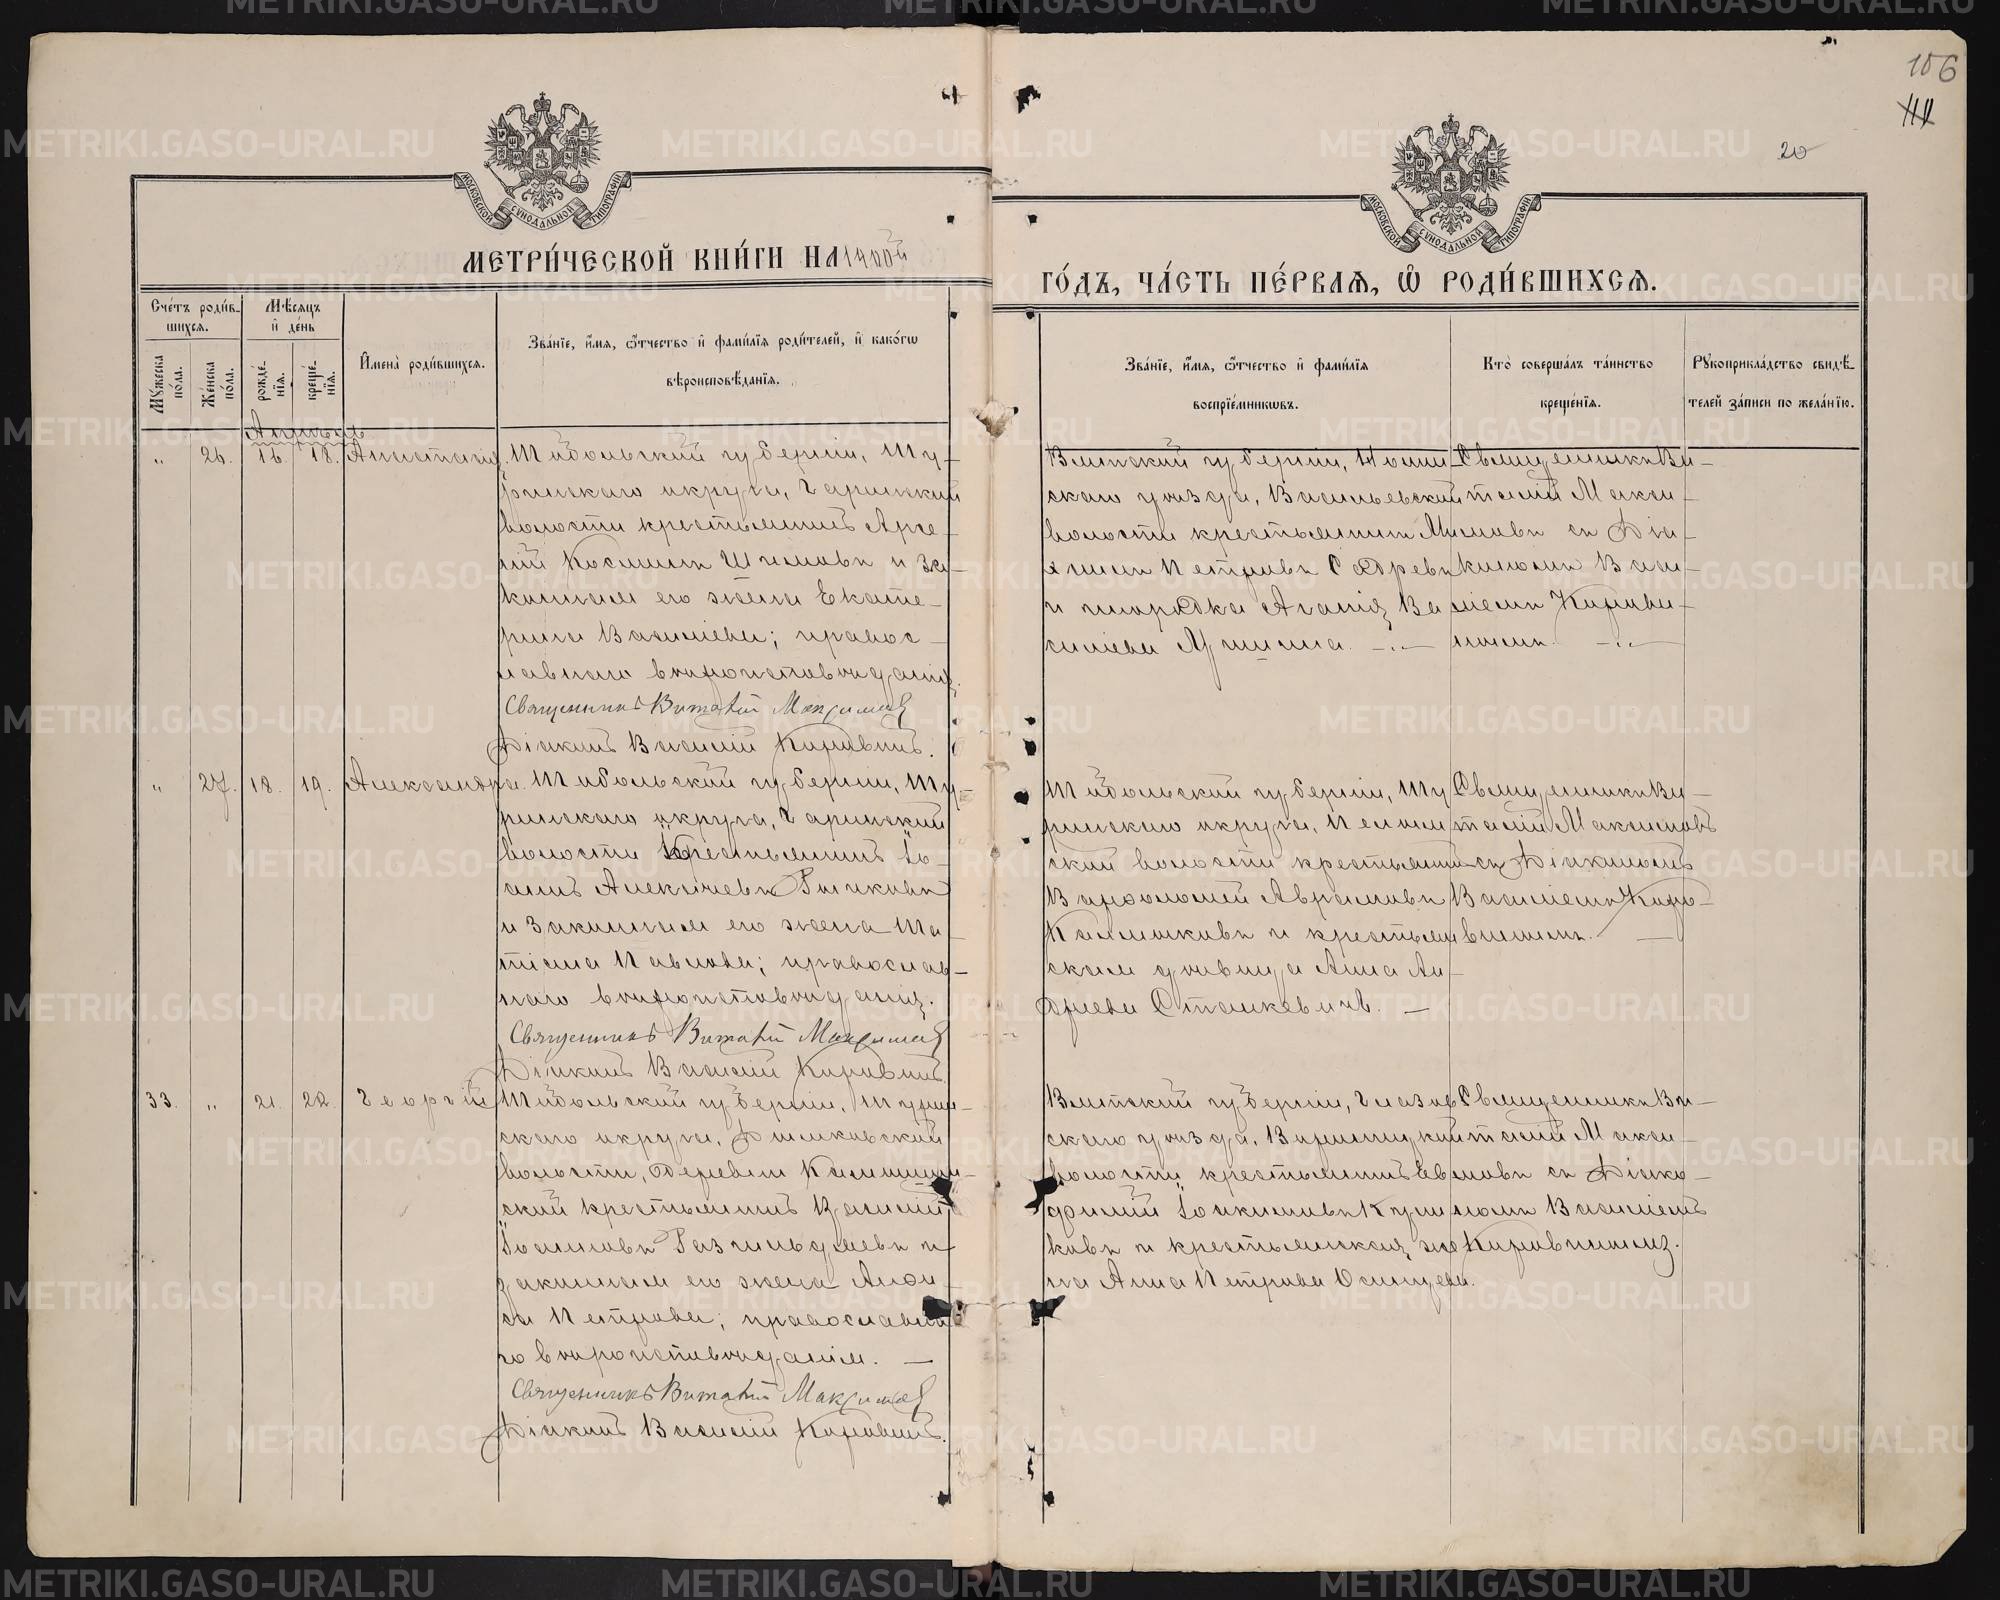 106
20
МОСКОВСКОЙ СѴНОДАЛЬНОЙ ТИПОГРАФІИ
МОСКОВСКОЙ СѴНОДАЛЬНОЙ ТИПОГРАФІИ
МЕТРИ́ЧЕСКОЙ КНИ́ГИ НА 1900й
ГО́ДЪ, ЧА́СТЬ ПЕ́РВАѦ, Ѡ РОДИ́ВШИХСѦ.
Сче́тъ роди́в-
шихся.
Мѣсяцъ
и де́нь
Му́жеска по́ла.
Же́нска по́ла.
рожде́-
нія.
креще́-
нія.
Имена̀ роди́вшихся.
Зва́ніе, и́мя, ѻ́тчество и фами́лія роди́телей, и како́гѡ
вѣроисповѣ́данія.
Зва́ніе, и́мя, ѻ́тчество и фами́лія
воспріе́мникѡвъ.
Кто̀ соверша́лъ та́инство
креще́нія.
Рукоприкла́дство свидѣ́-
телей за́писи по жела́нію.
Апрѣль
" 26. 16. 18. Анастасія.
Тобольской губерніи, Ту-
ринскаго округа, Гаринской
волости крестьянинъ Арсе-
ній Косминъ Шимовъ и За-
конная его жена Екате-
рина Василіева; правос-
лавнаго вѣроисповѣданія.
Священникъ Виталій Максимовъ
Діаконъ Василій Коровинъ.
Вятской губерніи,
скаго уѣзда, Васильевской
волости крестьянинъ М
Петровъ
и Агапія Ва-
силіева
Священникъ Ви-
талій Макси-
мовъ съ Діа-
кономъ Васи-
ліемъ Корови-
нымъ.
" 27. 18. 19. Александра.
Тобольской губерніи, Ту-
ринскаго округа, Гаринской
волости крестьянинъ Іо-
аннъ Алексѣевъ
и Законная его жена Та-
тіана Павлова; православ-
наго вѣроисповѣданія.
Священникъ Виталій Максимовъ
Діаконъ Василій Коровинъ
Тобольской губерніи, Ту
ринскаго округа, Пелым
ской волости крестьянинъ
Варфоломей Аврамовъ
Калмаковъ и крестьян
ская дѣвица Анна Ан-
дреева Станкевичъ.
Священникъ Ви-
талій Максимовъ
съ Діакономъ
Василіемъ Коро-
винымъ.
33. " 21. 22. Георгій
Тобольской губерніи, Турин-
скаго округа,
волости, деревни
ской крестьянинъ Василій
Іоанновъ и
законная его жена Анфи-
са Петрова; православна
го вѣроисповѣданія.
Священникъ Виталій Максимовъ
Діаконъ Василій Коровинъ.
Вятской губерніи, Глазов
скаго уѣзда,
волости крестьянинъ Ев
фимій Іоакимовъ
ковъ и крестьянская же
на Анна Петрова Осинцева.
Священникъ Ви-
талій Макси-
мовъ съ Діако-
номъ Василіемъ
Коровинымъ.
METRIKI.GASO-URAL.RU